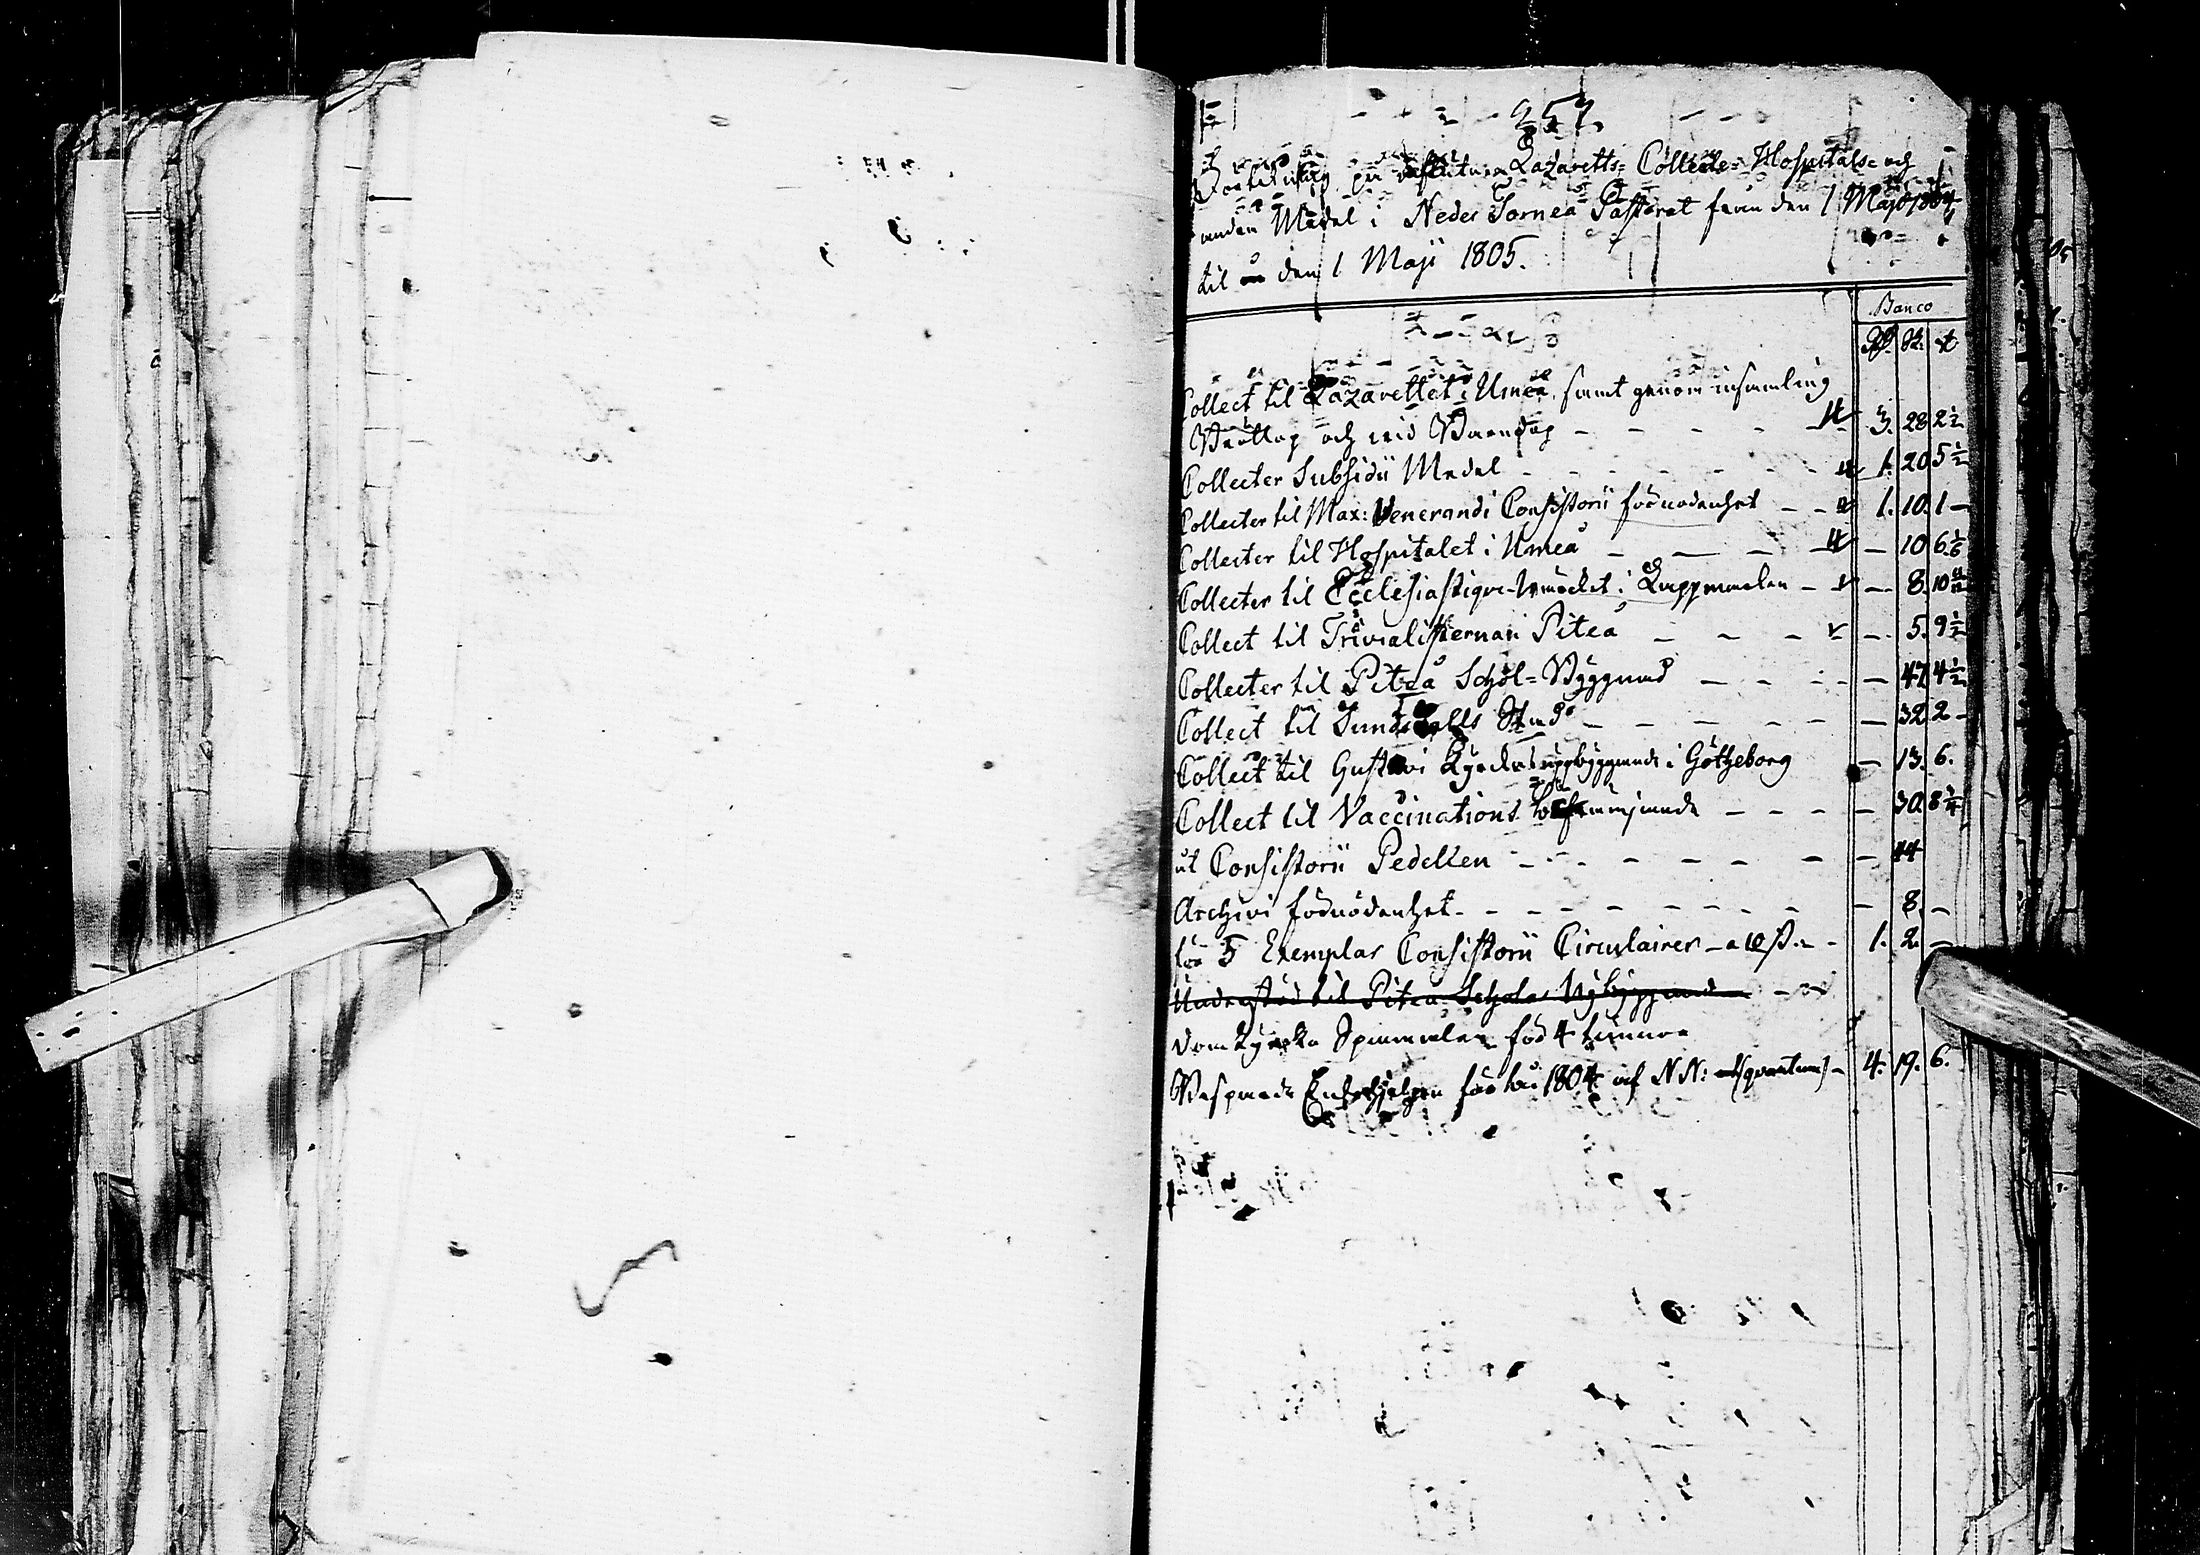 257.
Förteckning på influtne Lazaretts- Collecte- Hospitals- och
andra Medel i Neder Torneå Pastorat från den 1 Maji 1804
til den 1 Maji 1805.
Banco
Rd. sk. rst
Collect til Lazarettet i Umeå, samt genom insamling
Bröllop och vid Barndop - - - - 3. 28 2½
Collecter Subsidii Medel - - - - 1. 20 5½
Collecter til Max: Venerandi Consistorii förnödenhet - - 1. 10. 1 -
Collecter til Hospitalet i Umeå - - - - 10 6⅙
Collecter til Ecclesiastique-Wärket i Lappmarken - - 8. 10 11/12
Collect til Trivialisternas i Piteå - - - - 5. 9½
Collecter til Piteå Schol-Byggnad - - - - 47 4½
Collect til Sundsvalls Stad - - - - 32 2 -
Collect til Gustavi Kyrckas uppbyggande i Götheborg - 13. 6.
Collect til Vaccinations befrämjande - - - - 30. 8¼
åt Consistorii Pedellen - - - - 44
Archivi förnödenhet - - - - 8. -
för 5 Exemplar Consistorii Circulairer - a 10 ß. - 1. 2. -
Understöd til Piteå Schola Nybyggnad
Domkyrko Spannmålen för 4 tunnor
Wasprede för år 1804 af N N: (quantum) - 4. 19. 6.